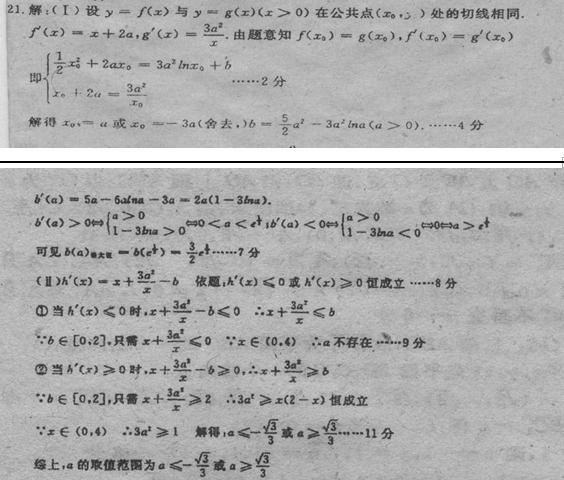 21.解:(Ⅰ)设 y = f(x) 与 y = g(x)(x > 0) 在公共点(x₀, ) 处的切线相同.
f′(x) = x + 2a, g′(x) = 3a²/x. 由题意知 f(x₀) = g(x₀), f′(x₀) = g′(x₀)
即{ 1/2 x₀² + 2ax₀ = 3a²lnx₀ + b
x₀ + 2a = 3a²/x₀ ……2 分
解得 x₀ = a 或 x₀ = - 3a(舍去,)b = 5/2 a² - 3a²lna(a > 0). ……4 分
b′(a) = 5a - 6alna - 3a = 2a(1 - 3lna).
b′(a) > 0⇔{ a > 0 1 - 3lna > 0 ⇔0 < a < e^(1/3); b′(a) < 0⇔{ a > 0 1 - 3lna < 0 ⇔0⇔a > e^(1/3)
可见 b(a)最大值 = b(e^(1/3)) = 3/2 e^(2/3) ……7 分
(Ⅱ)h′(x) = x + 3a²/x - b 依题,h′(x) ≤ 0 或 h′(x) ≥ 0 恒成立 ……8 分
①当 h′(x) ≤ 0 时, x + 3a²/x - b ≤ 0 ∴x + 3a²/x ≤ b
∵b ∈ [0,2],只需 x + 3a²/x ≤ 0 ∵x ∈ (0,4) ∴a 不存在 ……9 分
②当 h′(x) ≥ 0 时, x + 3a²/x - b ≥ 0,∴x + 3a²/x ≥ b
∵b ∈ [0,2],只需 x + 3a²/x ≥ 2 ∴3a² ≥ x(2 - x) 恒成立
∵x ∈ (0,4) ∴3a² ≥ 1 解得:a ≤ - √3/3 或 a ≥ √3/3 ……11 分
综上,a 的取值范围为 a ≤ - √3/3 或 a ≥ √3/3